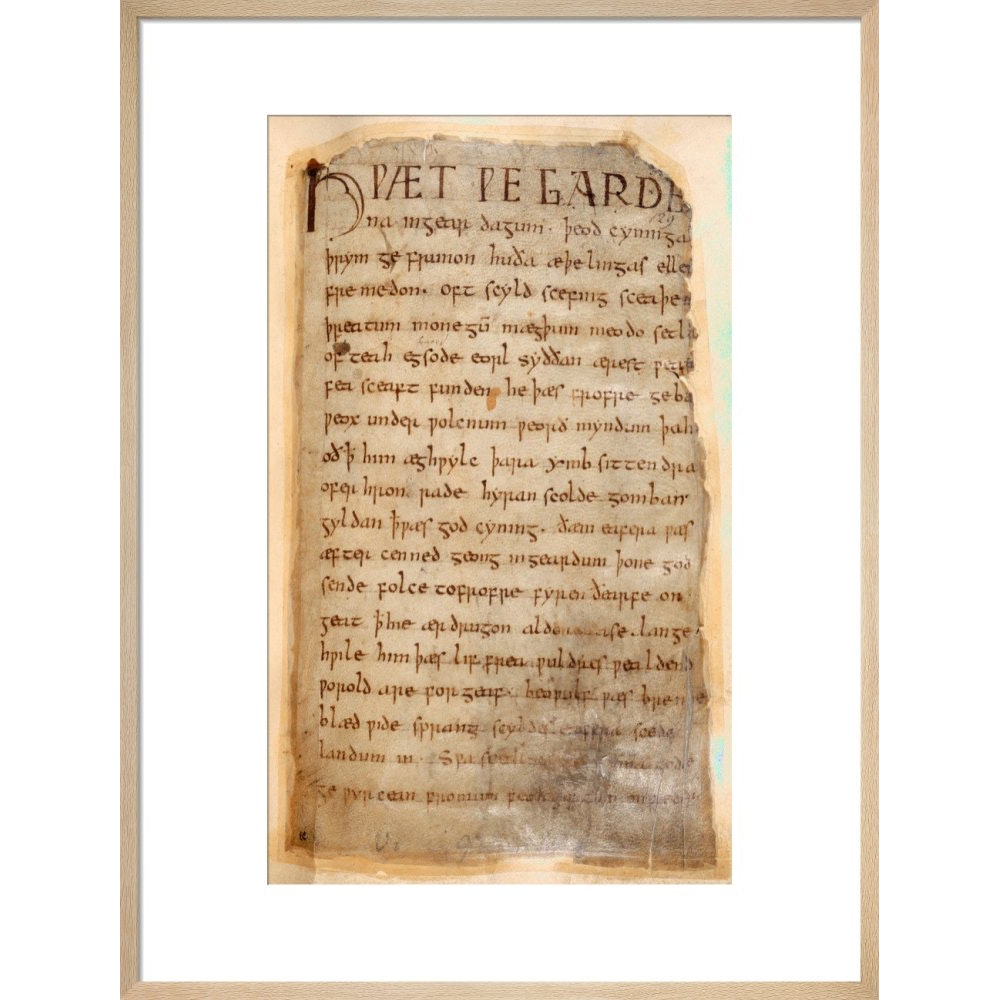 HǷÆT ǷE GARDE
na ingear dagum. þeod cyninga
þrym ge frunon huða æþelingas ellen
fre medon. oft scyld scefing sceaþen
þreatum monegū mægþum meodo setla
of teah egsode eorl syððan ærest ƿear
fea sceaft funden he þæs frofre geba
ƿeox under ƿolcnum ƿeorð myndum þah
oð ꝥ him æghƿylc þara ymb sittendra
ofer hron rade hyran scolde gomban
gyldan ꝥ ƿæs god cyning. ðæm eafera ƿæs
æfter cenned geong ingeardum þone god
sende folce tofrofre fyren ðearfe on
geat ꝥ hie ær drugon aldor ase. lange
hƿile him þæs lif frea ƿuldres ƿealdend
ƿorold are for geaf. beoƿulf ƿæs breme
blæd ƿide sprang scyldes eafera scede
landum in. Sƿa sceal ma gode
ge ƿyrcean fromum feoh giftum
129